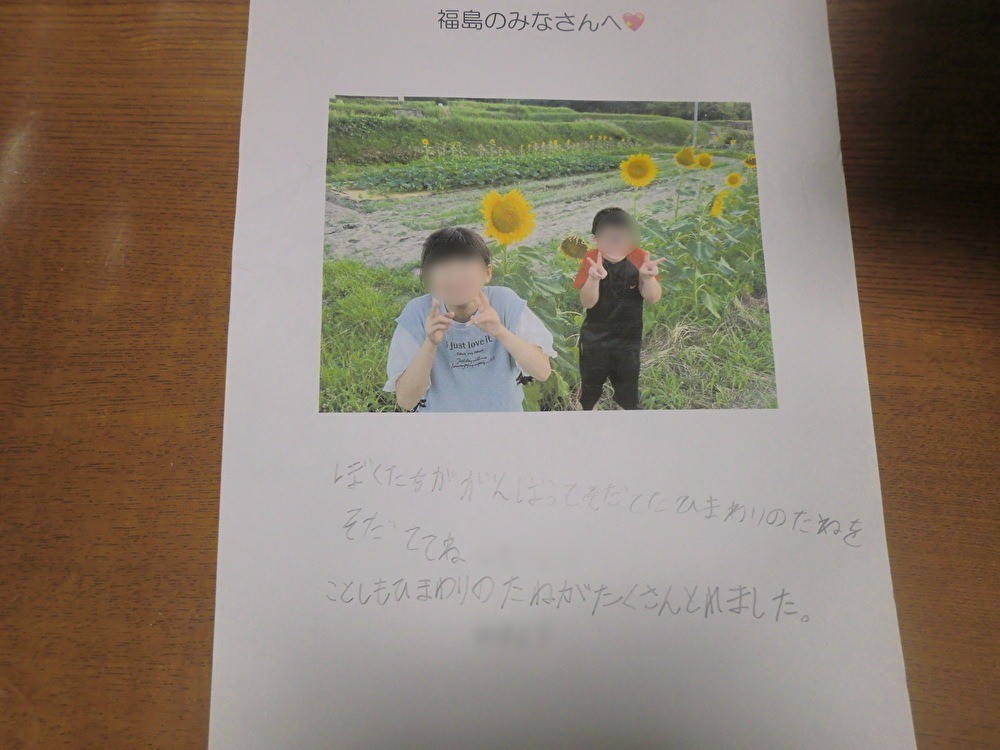 福島のみなさんへ💖
i just love it
ぼくたちががんばってそだてたひまわりのたねを
そだててね
ことしもひまわりのたねがたくさんとれました。